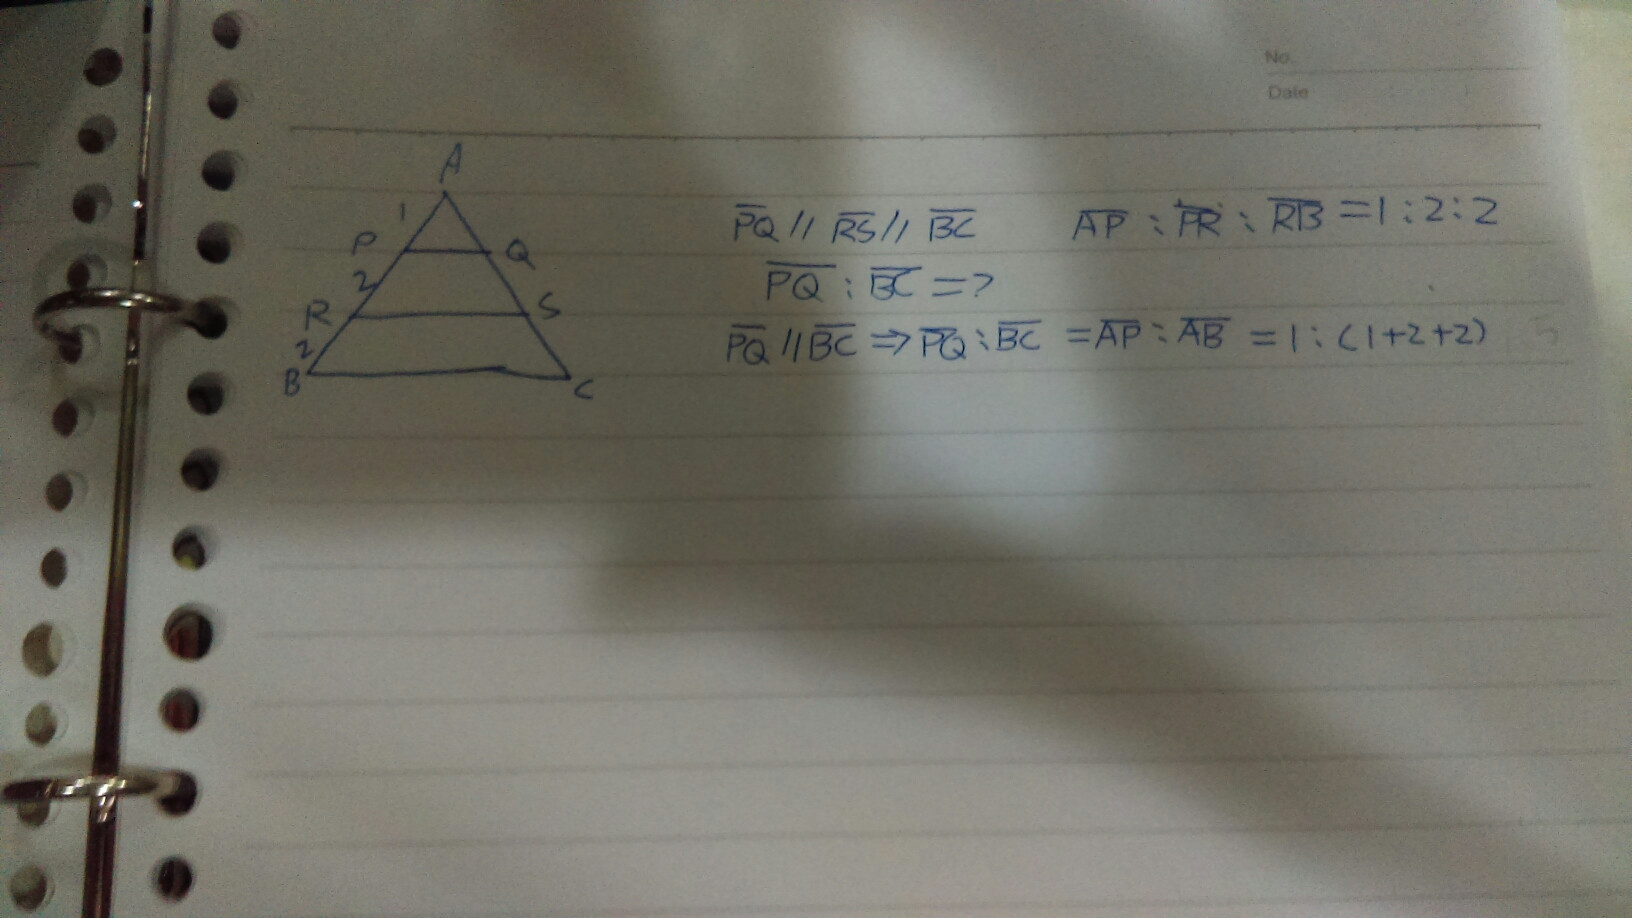 No.
Date
A
1
P
Q
2
R
S
2
B
C
PQ // RS // BC AP : PR : RB = 1 : 2 : 2
PQ : BC = ?
PQ // BC ⇒ PQ : BC = AP : AB = 1 : (1+2+2)